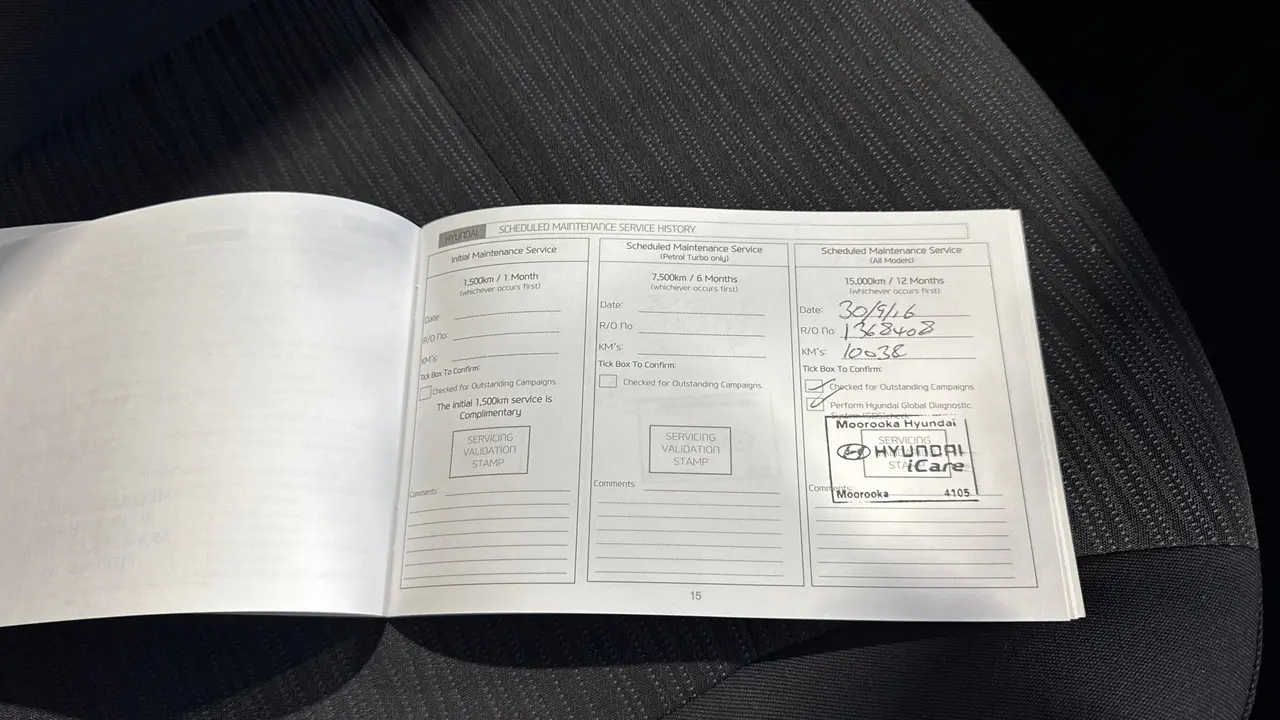 HYUNDAI SCHEDULED MAINTENANCE SERVICE HISTORY
Initial Maintenance Service
1,500km / 1 Month
(whichever occurs first)
Date
R/O No:
KM's:
Tick Box To Confirm:
Checked for Outstanding Campaigns
The initial 1,500km service is
Complimentary
SERVICING
VALIDATION
STAMP
Comments:
Scheduled Maintenance Service
(Petrol Turbo only)
7,500km / 6 Months
(whichever occurs first)
Date:
R/O No:
KM's:
Tick Box To Confirm:
Checked for Outstanding Campaigns
SERVICING
VALIDATION
STAMP
Comments:
Scheduled Maintenance Service
(All Models)
15,000km / 12 Months
(whichever occurs first)
Date: 30/9/16
R/O No: 1368408
KM's: 10038
Tick Box To Confirm:
Checked for Outstanding Campaigns
Perform Hyundai Global Diagnostic
System (GDS) check
Moorooka Hyundai
SERVICING
HYUNDAI
iCare
Comments:
Moorooka 4105
15